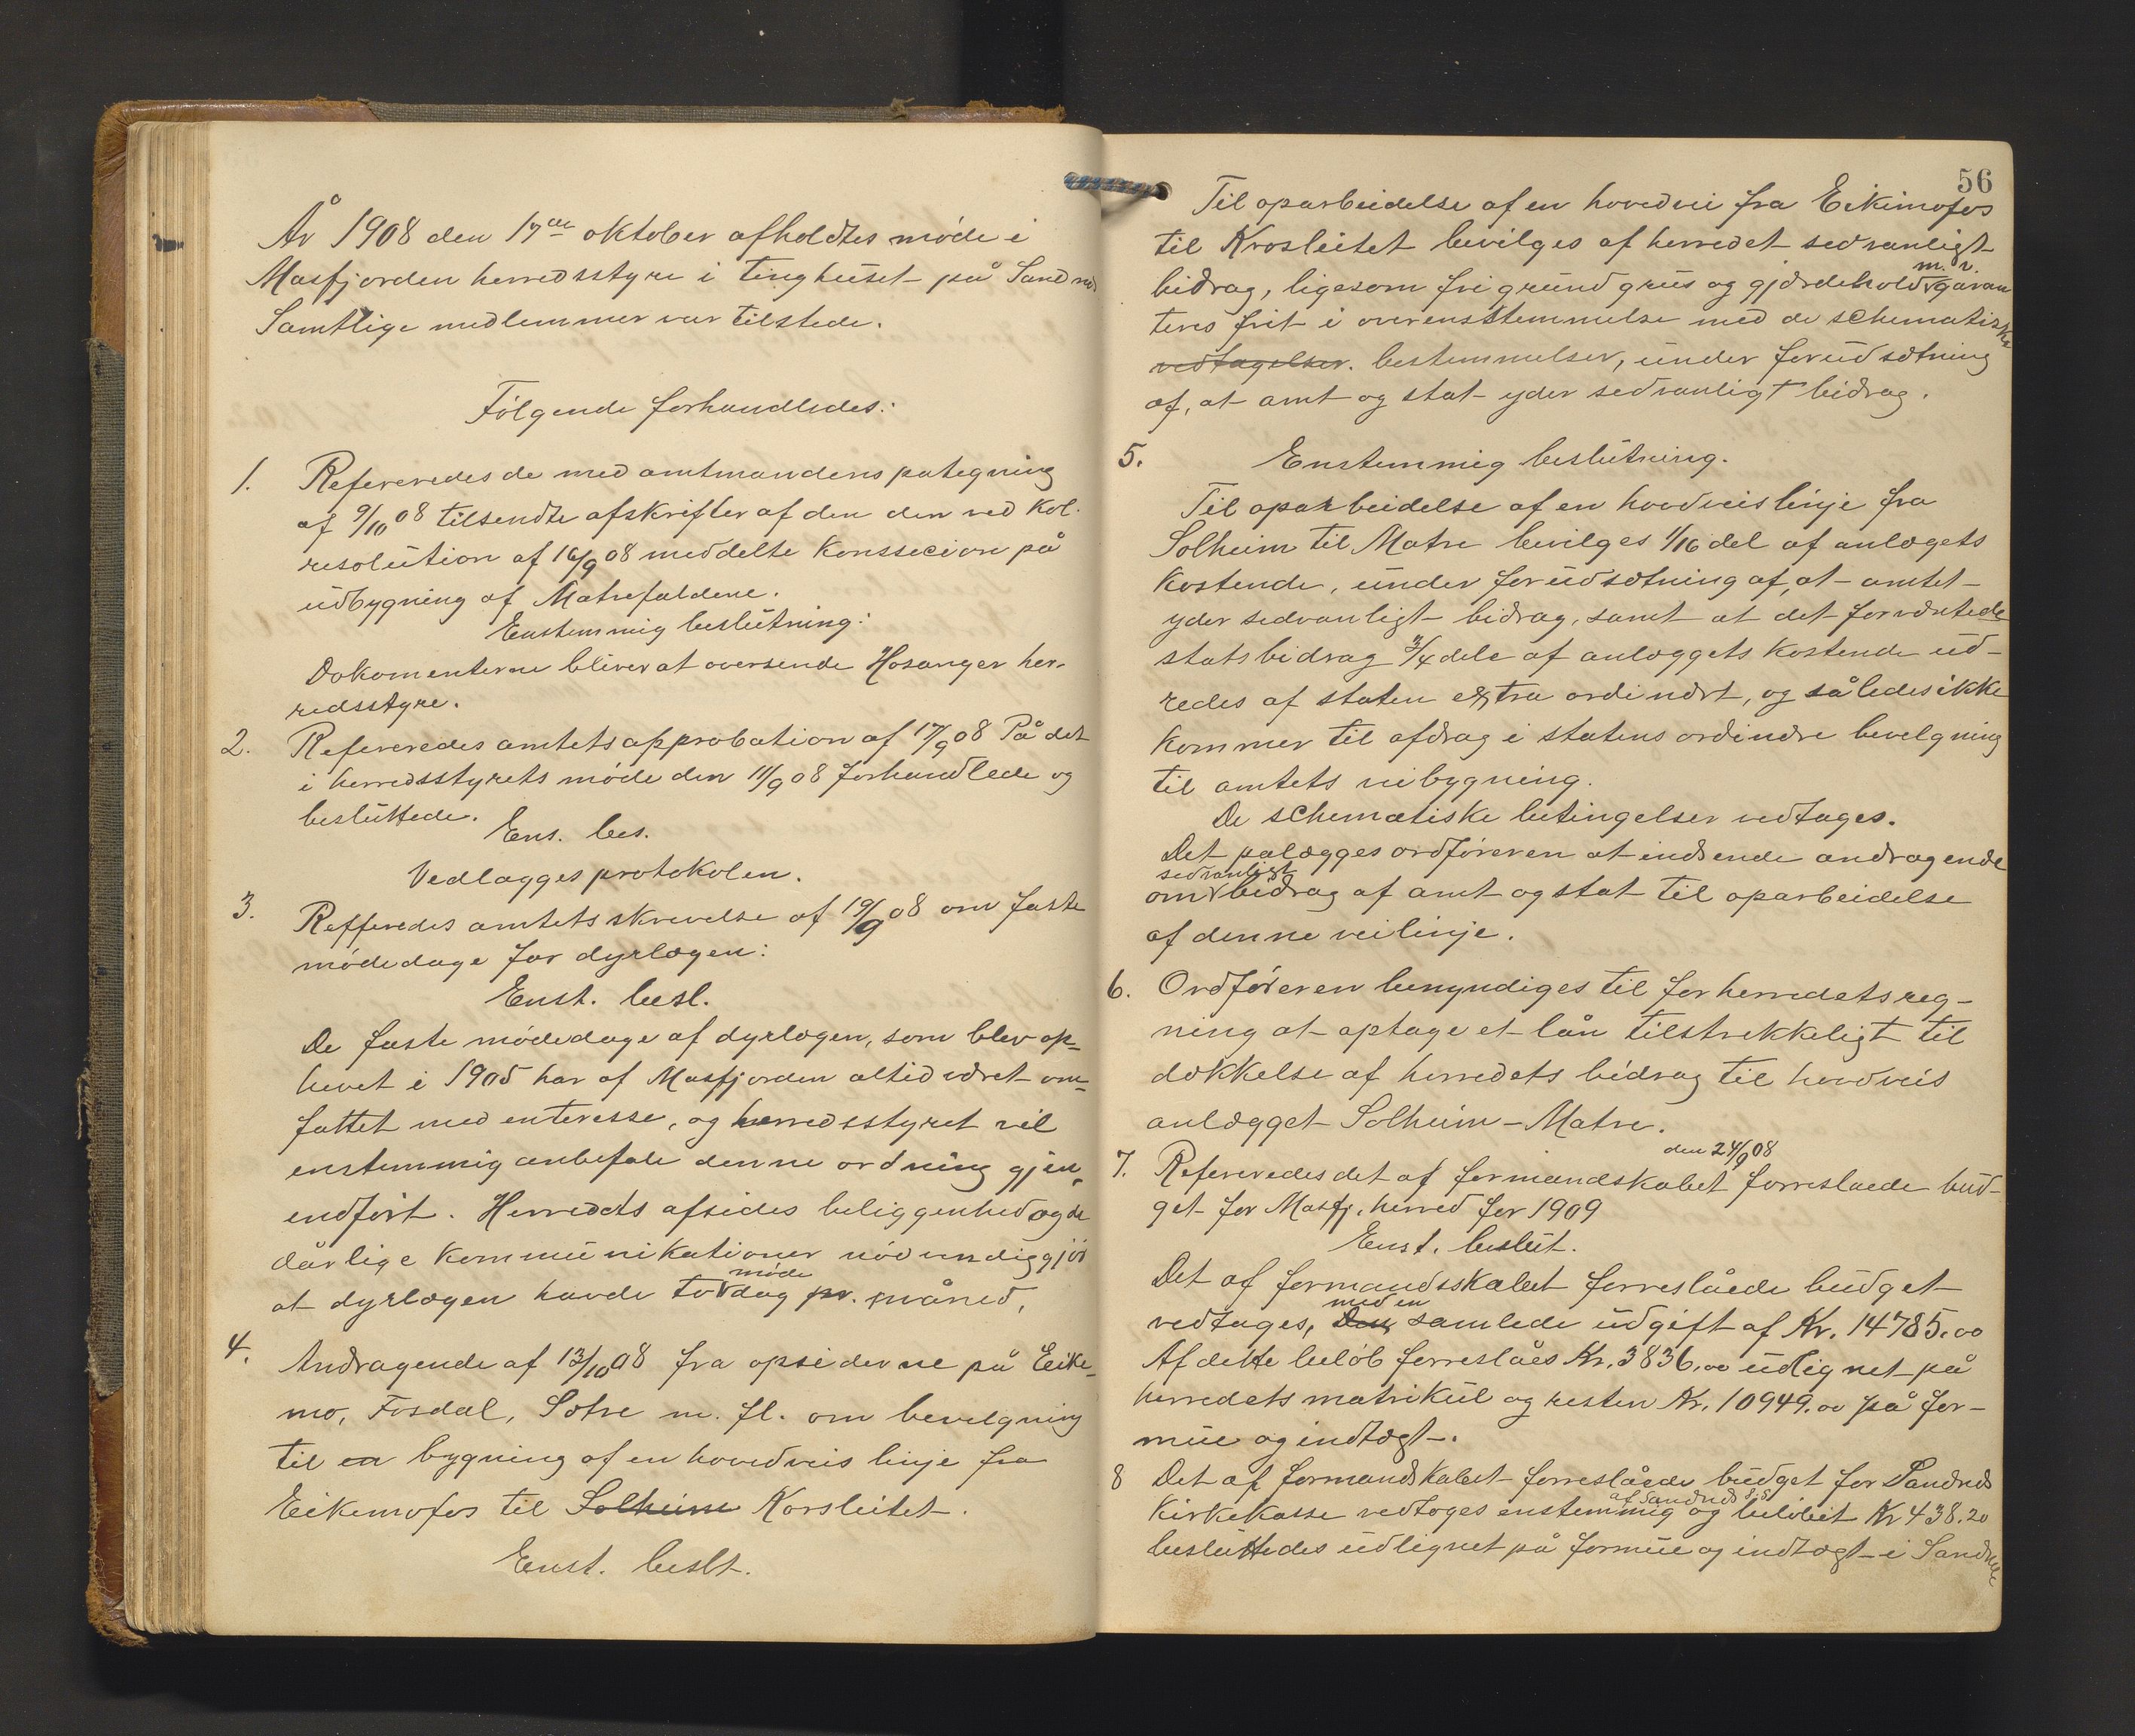 År 1908 den 17de oktober afholdtes møde i
Masfjorden herredsstyre i tinghuset på Sandnes
Samtlige medlemmer var tilstede.
Følgende forhandledes:
1. Refereredes de med amtmandens påtegning
af 9/10 08 tilsendte afskrifter af den den ved Kol.
resolution af 16/9 08 meddelte Konssecion på
udbygning af Matrefaldene.
Enstemmig beslutning:
Dokomenterne bliver at oversende Hosanger her-
redsstyre.
2. Refereredes amtets approbation af 17/9 08 På det
i herredsstyrets møde den 11/9 08 forhandlede og
besluttede.
Ens. bes.
Vedlægges protokolen.
3. Refferedes amtets skrivelse af 19/9 08 om faste
mødedage for dyrlægen:
Enst. besl.
De faste mødedage af dyrlægen, som blev op-
hevet i 1905 har af Masfjorden altid været om-
fattet med enteresse, og herredsstyret vil
enstemmig anbefale denne ordning gjen-
endført. Herredets afsides beliggenhed og de
dårlige kommunikationer nødvendiggjør
møde
at dyrlægen havde to dag pr. måned,
4. Andragende af 13/10 08 fra opsiderne på Eike-
mo, Fosdal, Sotre m. fl. om bevilgning
til en bygning af en hovedveis linje fra
Eikemofos til Solheim Korsleitet.
Enst. beslt.
56
Til oparbeidelse af en hovedvei fra Eikimofos
til Krosleitet bevilges af herredet sedvanligt
m. v.
bidrag, ligesom fri grund grus og gjærdehold garan
teres frit i overensstemmelse med de schematiske
vedtagelser. bestemmelser, under forudsætning
af, at amt og stat yder sedvanligt bidrag.
5. Enstemmig beslutning.
Til oparbeidelse af en hovdveislinje fra
Solheim til Matre bevilges 1/16 del af anlægets
Kostende, under forudsætning af, at amtet
yder sedvanligt bidrag, samt at det forventede
statsbidrag 3/4 dele af anlæggets Kostende ud-
redes af staten extra ordinært, og således ikke
kommer til afdrag i statens ordinære bevelgning
til amtets veibygning.
De schematiske betingelser vedtages.
Det pålægges ordføreren at indsende andragende
sedvanligt
om bidrag af amt og stat til oparbeidelse
af denne veilinje.
6. Ordføreren bemyndiges til for herredets reg-
ning at optage et lån tilstrekkeligt til
dækkelse af herredets bidrag til hovdveis
anlægget Solheim - Matre.
den 24/9 08
7. Refereredes det af formandskabet forreslaede bud-
get for Masfj. herred for 1909
Enst. beslut.
Det af formandsskabet forreslåede budget
med en
vedtages, Den samlede udgift af Kr. 14785.00
Af dette beløb forreslåes Kr. 3836.00 udlignet på
herredets matrikul og resten Kr. 10949.00 på for-
mue og indtægt.
8 Det af formandskabet forreslåede budget for Sandnes
af Sandnes
Kirkekasse vedtoges enstemmig og beløbet Kr 438.20
besluttedes udlignet på formue og indtægt i Sandnes